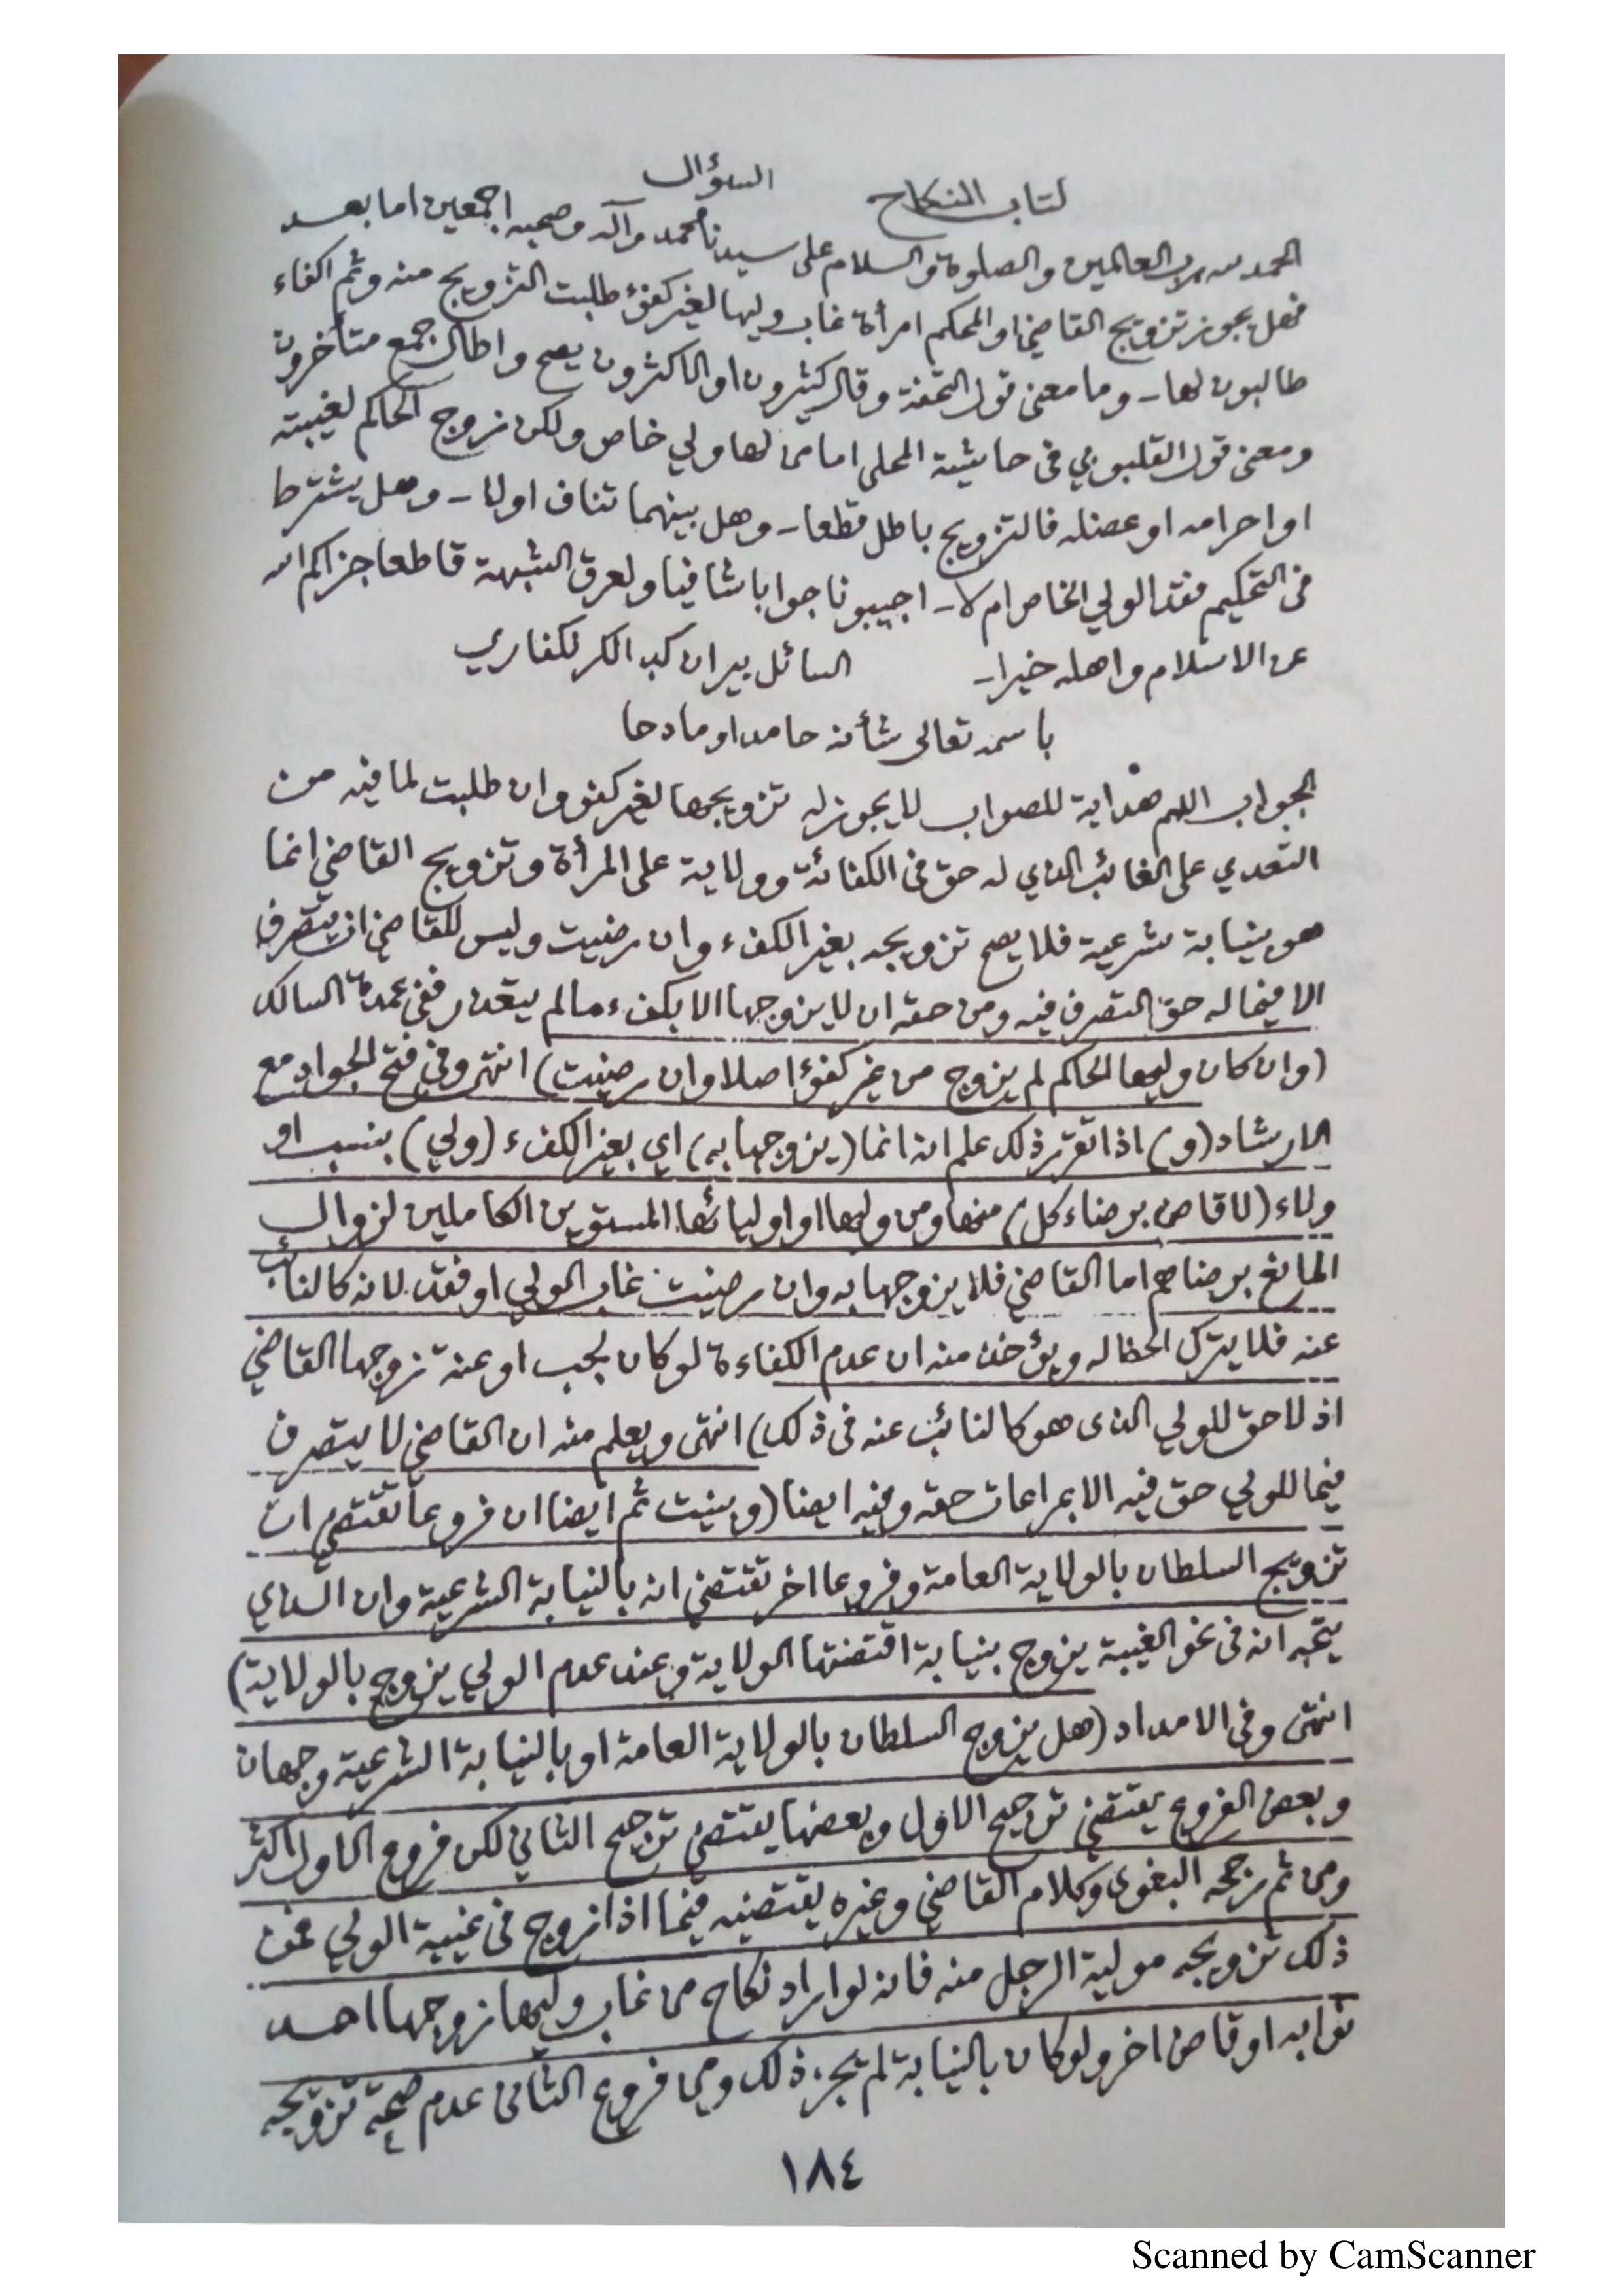 كتاب النكاح السؤال
الحمد لله رب العالمين والصلوة والسلام على سيدنا محمد وآله وصحبه اجمعين اما بعد
فهل يجوز تزويج القاضي او المحكم امرأة غاب وليها لغير كفؤ طلبت التزويج منه وثم اكفاء
طالبون لها - وما معنى قول التحفة وقال كثيرون او الاكثرون يصح واطال جمع متأخرون
ومعنى قول القليوبي في حاشية المحلي اما من لها ولي خاص ولكن زوج الحاكم لغيبته
او احرامه او عضله فالتزويج باطل قطعا - وهل بينهما تناف اولا - وهل يشترط
في التحكيم فقد الولي الخاص ام لا - اجيبونا جوابا شافيا ولعرق الشبهة قاطعا جزاكم الله
عن الاسلام واهله خيرا - السائل بيران كبد الكرلكفاري
باسمه تعالى شأنه حامدا ومادحا
الجواب اللهم هداية للصواب لا يجوز له تزويجها لغير كفو وان طلبت لما فيه من
التعدي على الغائب الذي له حق في الكفائة وولاية على المرأة وتزويج القاضي انما
هو بنيابة شرعية فلا يصح تزويجه بغير الكفء وان رضيت وليس للقاضي ان يتصرف
الا فيما له حق التصرف فيه ومن حقه ان لا يزوجها الا بكفء ما لم يتعذر ففي عمدة السالك
(وان كان وليها الحاكم لم يزوج من غير كفؤ اصلا وان رضيت) انتهى وفي فتح الجواد مع
الارشاد (و) اذا تقرر ذلك علم انه انما (يزوجها به) اي بغير الكفء (ولي) بنسب او
ولاء (لا قاض برضاء كل) منها ومن وليها او اوليائها المستوين الكاملين لزوال
المانع برضاهم اما القاضي فلا يزوجها به وان رضيت غاب الولي او فقد لانه كالنائب
عنه فلا يترك الحظ له ويؤخذ منه ان عدم الكفاءة لو كان لجب او عنة تزوجها القاضي
اذ لا حق للولي الذى هو كالنائب عنه في ذلك) انتهى ويعلم منه ان القاضي لا يتصرف
فيما للولي حق فيه الا بمراعات حقه وفيه ايضا (وبينت ثم ايضا ان فروعا تقتضي ان
تزويج السلطان بالولاية العامة وفروعا اخر تقتضي انه بالنيابة الشرعية وان الذي
يتجه انه في نحو الغيبة يزوج بنيابة اقتضتها الولاية وعند عدم الولي يزوج بالولاية)
انتهى وفي الامداد (هل يزوج السلطان بالولاية العامة او بالنيابة الشرعية وجهان
وبعض الفروع يقتضي ترجيح الاول وبعضها يقتضي ترجيح الثاني لكن فروع الاول اكثر
ومن ثم رجحه البغوى وكلام القاضي وغيره يقتضيه فيما اذا زوج في غيبة الولي فمن
ذلك تزويجه مولية الرجل منه فانه لو اراد نكاح من غاب وليها زوجها احد
نوابه او قاض اخر ولو كان بالنيابة لم يجز ذلك ومن فروع الثانى عدم صحة تزويجه
١٨٤
Scanned by CamScanner